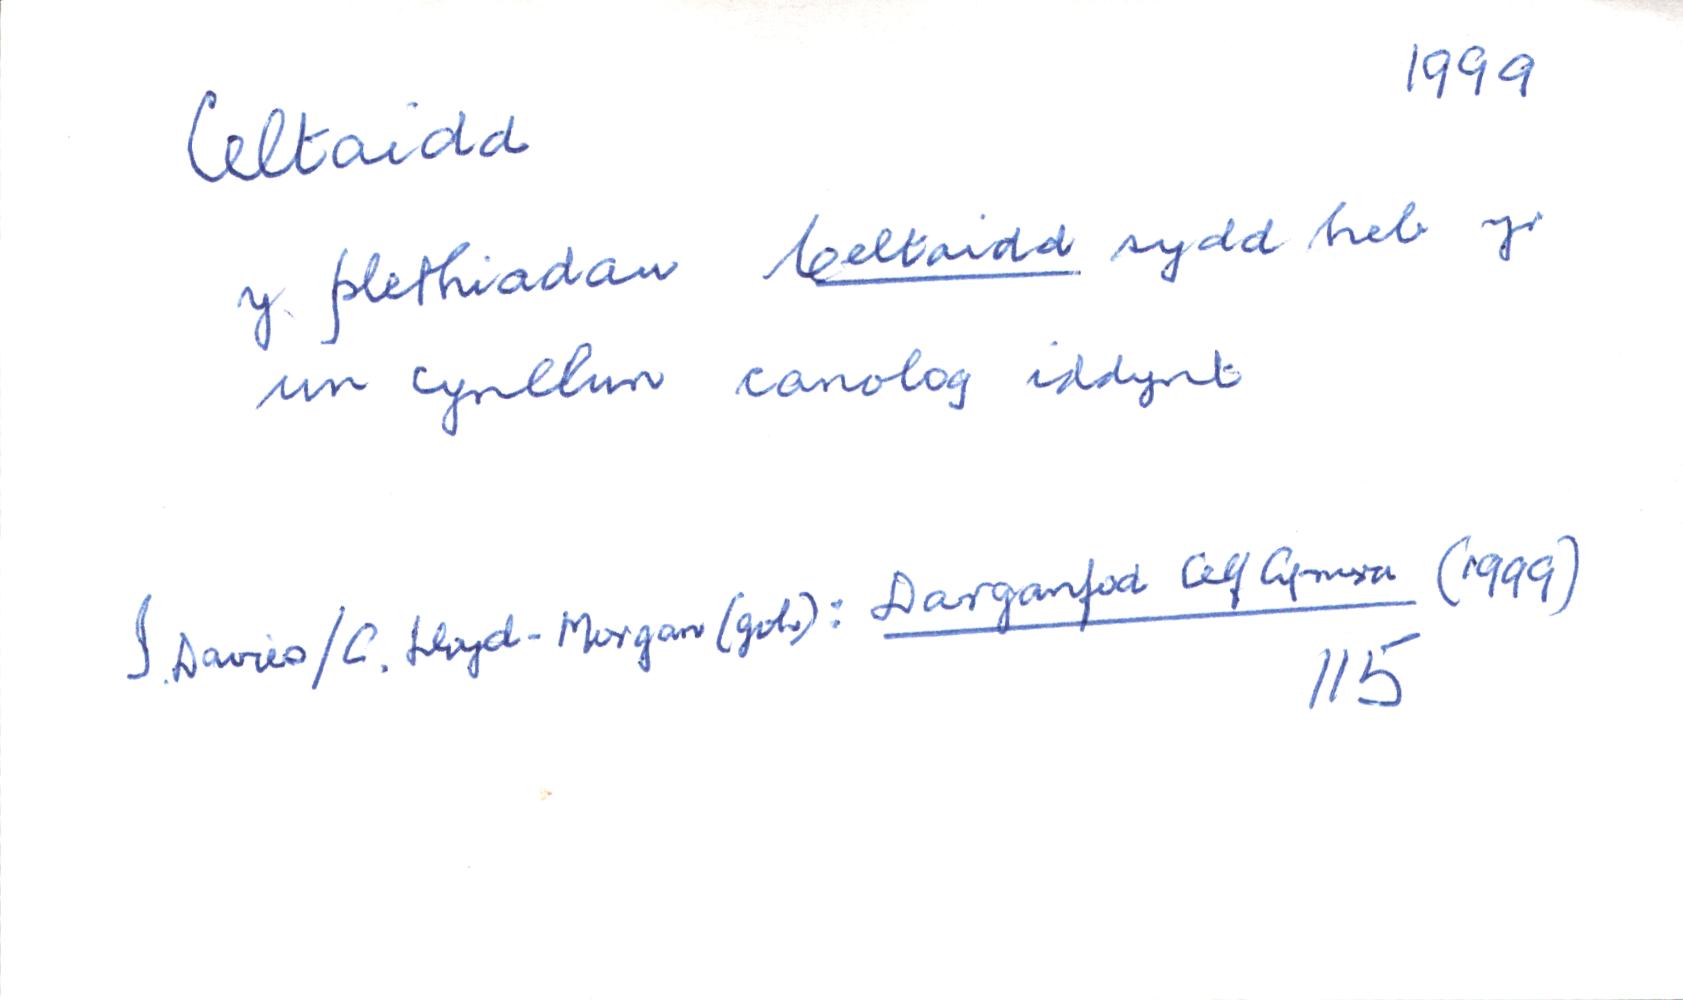 1999
Celtaidd
y plethiadau Celtaidd sydd heb yr
un cynllun canolog iddynt
I. Davies/C. Lloyd-Morgan (goln): Darganfod Celf Cymru (1999)
115